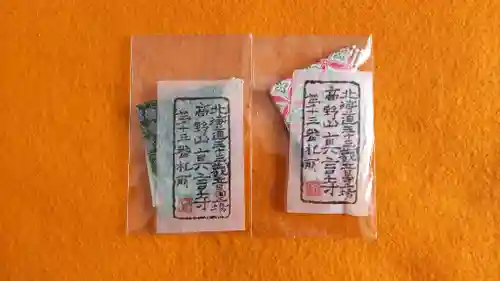 北海道三十三観音霊場
高野山真言寺
三十三番札所
北海道三十三観音霊場
高野山真言寺
三十三番札所